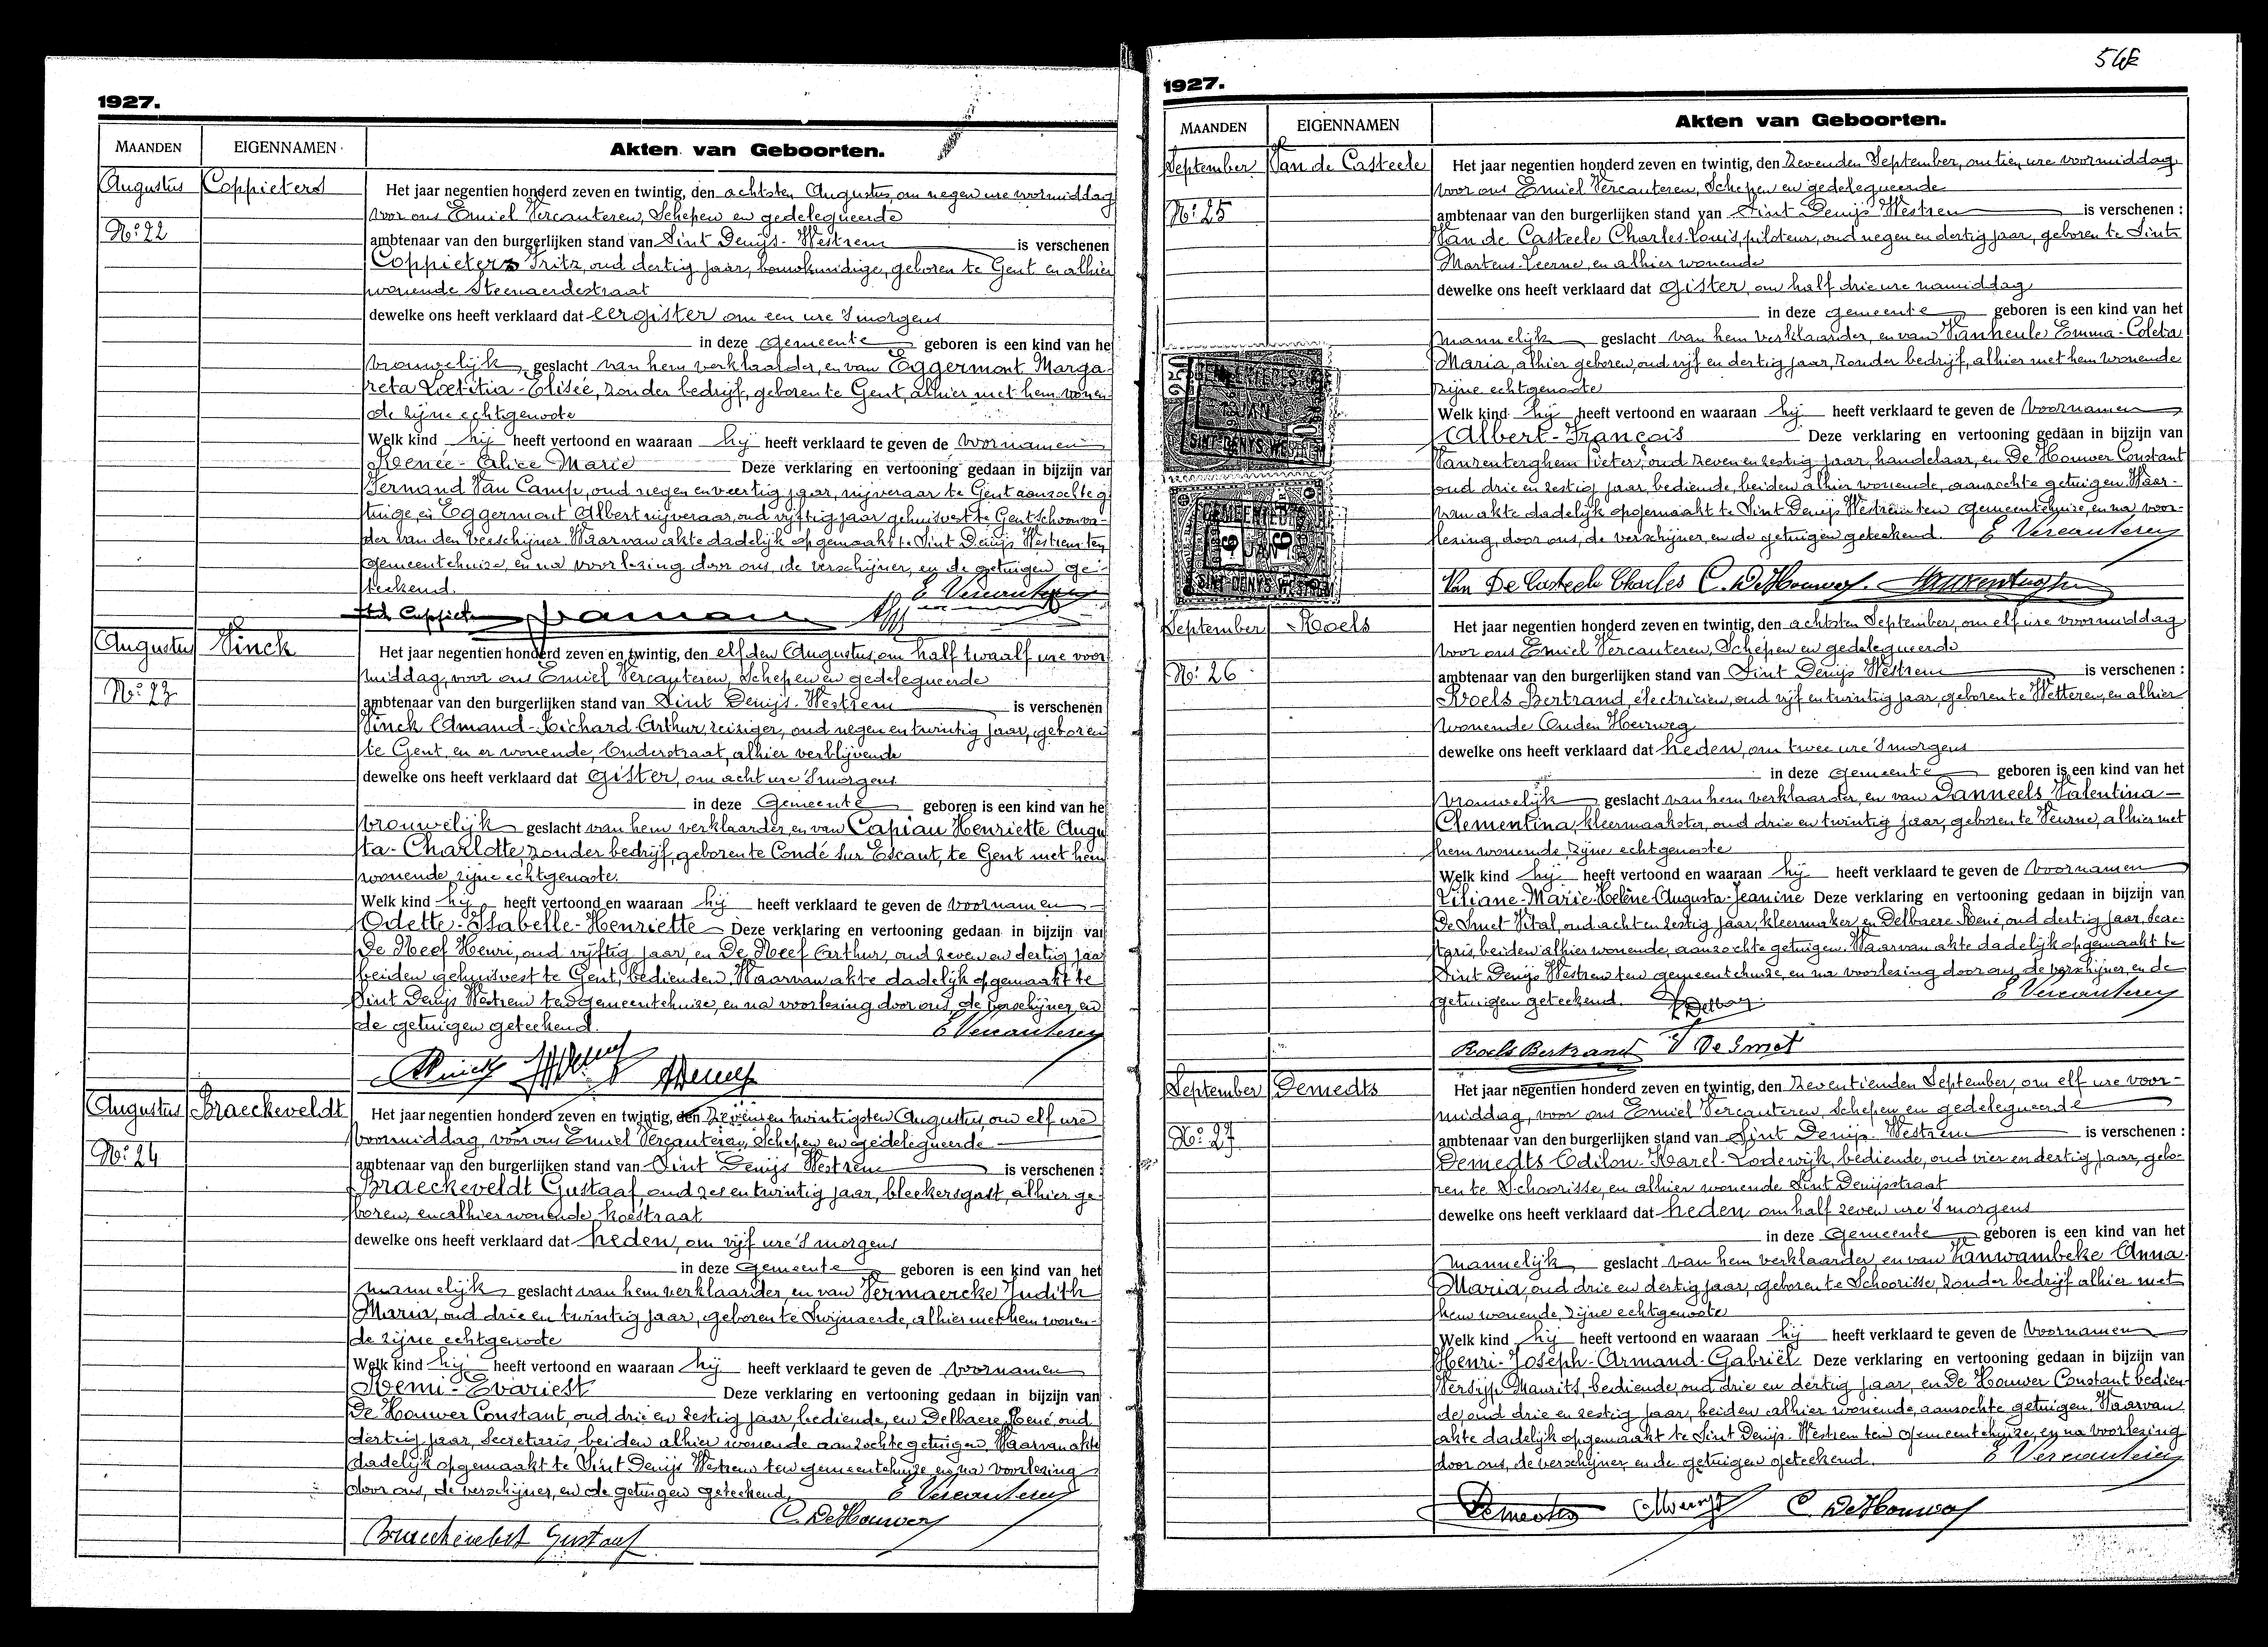 1927.
MAANDEN EIGENNAMEN Akten van Geboorten.
Augustus Coppieters
Nº 22
Het jaar negentien honderd zeven en twintig, den achtsten Augustus, om negen ure voormiddag
voor ons Emiel Vercauteren, Schepen en gedelegueerde
ambtenaar van den burgerlijken stand van Sint Denijs-Westrem is verschenen
Coppieters Fritz, oud dertig jaar, bouwkundige, geboren te Gent en alhier
wonende Steenaerdestraat
dewelke ons heeft verklaard dat eergister om een ure 's morgens
in deze Gemeente geboren is een kind van he
vrouwelijk geslacht van hem verklaarder, en van Eggermont Marga-
reta Lætitia-Elisée, zonder bedrijf, geboren te Gent, alhier met hem wonen-
de zijne echtgenoote
Welk kind hij heeft vertoond en waaraan hij heeft verklaard te geven de voornamen
Renée-Alice Marie Deze verklaring en vertooning gedaan in bijzijn van
Fernand Van Camp, oud negen en veertig jaar, nijveraar te Gent aanzochte ge-
tuige, en Eggermont Albert nijveraar, oud vijftig jaar gehuisvest te Gent schoonva-
der van den verschijner. Waarvan akte dadelijk opgemaakt te Sint Denijs Westrem ten
gemeentehuize, en na voorlezing door ons, de verschijner, en de getuigen ge-
teekend. E Vercauteren
Augustus Vinck
Nº 23
Het jaar negentien honderd zeven en twintig, den elfden Augustus, om half twaalf ure voor-
middag, voor ons Emiel Vercauteren, Schepen en gedelegueerde
ambtenaar van den burgerlijken stand van Sint Denijs-Westrem is verschenen
Vinck Amand-Richard-Arthur, reiziger, oud negen en twintig jaar, geboren
te Gent, en er wonende, Onderstraat, alhier verblijvende
dewelke ons heeft verklaard dat gister, om acht ure 's morgens
in deze Gemeente geboren is een kind van he
vrouwelijk geslacht van hem verklaarder, en van Capiau Henriette Augu
sta-Charlotte, zonder bedrijf, geboren te Condé sur Escaut, te Gent met hem
wonende, zijne echtgenoote.
Welk kind hij heeft vertoond en waaraan hij heeft verklaard te geven de voornamen
Odette-Isabelle-Henriette Deze verklaring en vertooning gedaan in bijzijn van
De Neef Henri, oud vijftig jaar, en De Neef Arthur, oud zeven en dertig jaar
beiden gehuisvest te Gent, bedienden. Waarvan akte dadelijk opgemaakt te
Sint Denijs Westrem ten gemeentehuize, en na voorlezing door ons, de verschijner en
de getuigen geteekend. E Vercauteren
Augustus Braeckeveldt
Nº 24
Het jaar negentien honderd zeven en twintig, den zevenentwintigsten Augustus, om elf ure
voormiddag, voor ons Emiel Vercauteren, Schepen en gedelegueerde
ambtenaar van den burgerlijken stand van Sint Denijs Westrem is verschenen :
Braeckeveldt Gustaaf, oud zes en twintig jaar, bleekersgast, alhier ge-
boren, en alhier wonende, Koestraat
dewelke ons heeft verklaard dat heden, om vijf ure 's morgens
in deze Gemeente geboren is een kind van het
mannelijk geslacht van hem verklaarder, en van Vermaercke Judith
Maria, oud drie en twintig jaar, geboren te Swijnaerde, alhier met hem wonen-
de zijne echtgenoote
Welk kind hij heeft vertoond en waaraan hij heeft verklaard te geven de voornamen
Remi-Evariest Deze verklaring en vertooning gedaan in bijzijn van
De Houwer Constant, oud drie en zestig jaar, bediende, en Delbaere René, oud
dertig jaar, Secretaris, beiden alhier wonende aanzochte getuigen. Waarvan akte
dadelijk opgemaakt te Sint Denijs Westrem ten gemeentehuize, en na voorlezing
door ons, de verschijner, en de getuigen geteekend. E Vercauteren
C. DeHouwer
Braeckeveldt Gustaaf
1927.
MAANDEN EIGENNAMEN Akten van Geboorten.
September Van de Casteele
Nº 25
Het jaar negentien honderd zeven en twintig, den zevenden September, om tien ure voormiddag
voor ons Emiel Vercauteren, Schepen en gedelegueerde
ambtenaar van den burgerlijken stand van Sint Denijs Westrem is verschenen :
Van de Casteele Charles-Louis, piloteur, oud negen en dertig jaar, geboren te Sint-
Martens-Leerne, en alhier wonende
dewelke ons heeft verklaard dat gister, om half drie ure namiddag
in deze gemeente geboren is een kind van het
mannelijk geslacht van hem verklaarder, en van Vanheule Emma-Coleta
Maria, alhier geboren, oud vijf en dertig jaar, zonder bedrijf, alhier met hem wonende
zijne echtgenoote
Welk kind hij heeft vertoond en waaraan hij heeft verklaard te geven de voornamen
Albert-François Deze verklaring en vertooning gedaan in bijzijn van
Vanzenterghem Pieter, oud zeven en zestig jaar, handelaar, en De Houwer Constant
oud drie en zestig jaar, bediende, beiden alhier wonende, aanzochte getuigen. Waar-
van akte dadelijk opgemaakt te Sint Denijs Westrem ten gemeentehuize, en na voor-
lezing, door ons, de verschijner, en de getuigen geteekend. E Vercauteren
Van De Casteele Charles C. DeHouwer.
September Roels
Nº 26
Het jaar negentien honderd zeven en twintig, den achtsten September, om elf ure voormiddag
voor ons Emiel Vercauteren, Schepen en gedelegueerde
ambtenaar van den burgerlijken stand van Sint Denijs Westrem is verschenen :
Roels Bertrand, électricien, oud vijf en twintig jaar, geboren te Wetteren, en alhier
wonende Ouden Heirweg
dewelke ons heeft verklaard dat heden, om twee ure 's morgens
in deze gemeente geboren is een kind van het
vrouwelijk geslacht van hem verklaarder, en van Danneels Valentina-
Clementina, kleermaakster, oud drie en twintig jaar, geboren te Veurne, alhier met
hem wonende, zijne echtgenoote
Welk kind hij heeft vertoond en waaraan hij heeft verklaard te geven de voornamen
Liliane-Marie-Helène-Augusta-Jeanine Deze verklaring en vertooning gedaan in bijzijn van
De Smet Vital, oud acht en zestig jaar, kleermaker, en Delbaere René, oud dertig jaar, Secre-
taris, beiden alhier wonende, aanzochte getuigen. Waarvan akte dadelijk opgemaakt te
Sint Denijs Westrem ten gemeentehuize, en na voorlezing door ons, de verschijner, en de
getuigen geteekend. E Vercauteren
Roels Bertrand V De Smet
September Demedts
Nº 27
Het jaar negentien honderd zeven en twintig, den zeventienden September, om elf ure voor-
middag, voor ons Emiel Vercauteren, Schepen en gedelegueerde
ambtenaar van den burgerlijken stand van Sint Denijs-Westrem is verschenen :
Demedts Odilon-Karel-Lodewijk, bediende, oud vier en dertig jaar, gebo-
ren te Schoorisse, en alhier wonende Sint Denijsstraat
dewelke ons heeft verklaard dat heden om half zeven ure 's morgens
in deze Gemeente geboren is een kind van het
mannelijk geslacht van hem verklaarder, en van Vanwambeke Anna-
Maria, oud drie en dertig jaar, geboren te Schoorisse, zonder bedrijf alhier met
hem wonende, zijne echtgenoote
Welk kind hij heeft vertoond en waaraan hij heeft verklaard te geven de voornamen
Henri-Joseph-Armand-Gabriël Deze verklaring en vertooning gedaan in bijzijn van
Versyp Maurits, bediende, oud drie en dertig jaar, en De Houwer Constant bedien-
de, oud drie en zestig jaar, beiden alhier wonende, aanzochte getuigen. Waarvan
akte dadelijk opgemaakt te Sint Denijs-Westrem ten gemeentehuize, en na voorlezing
door ons, de verschijner, en de getuigen geteekend. E Vercauteren
C. DeHouwer